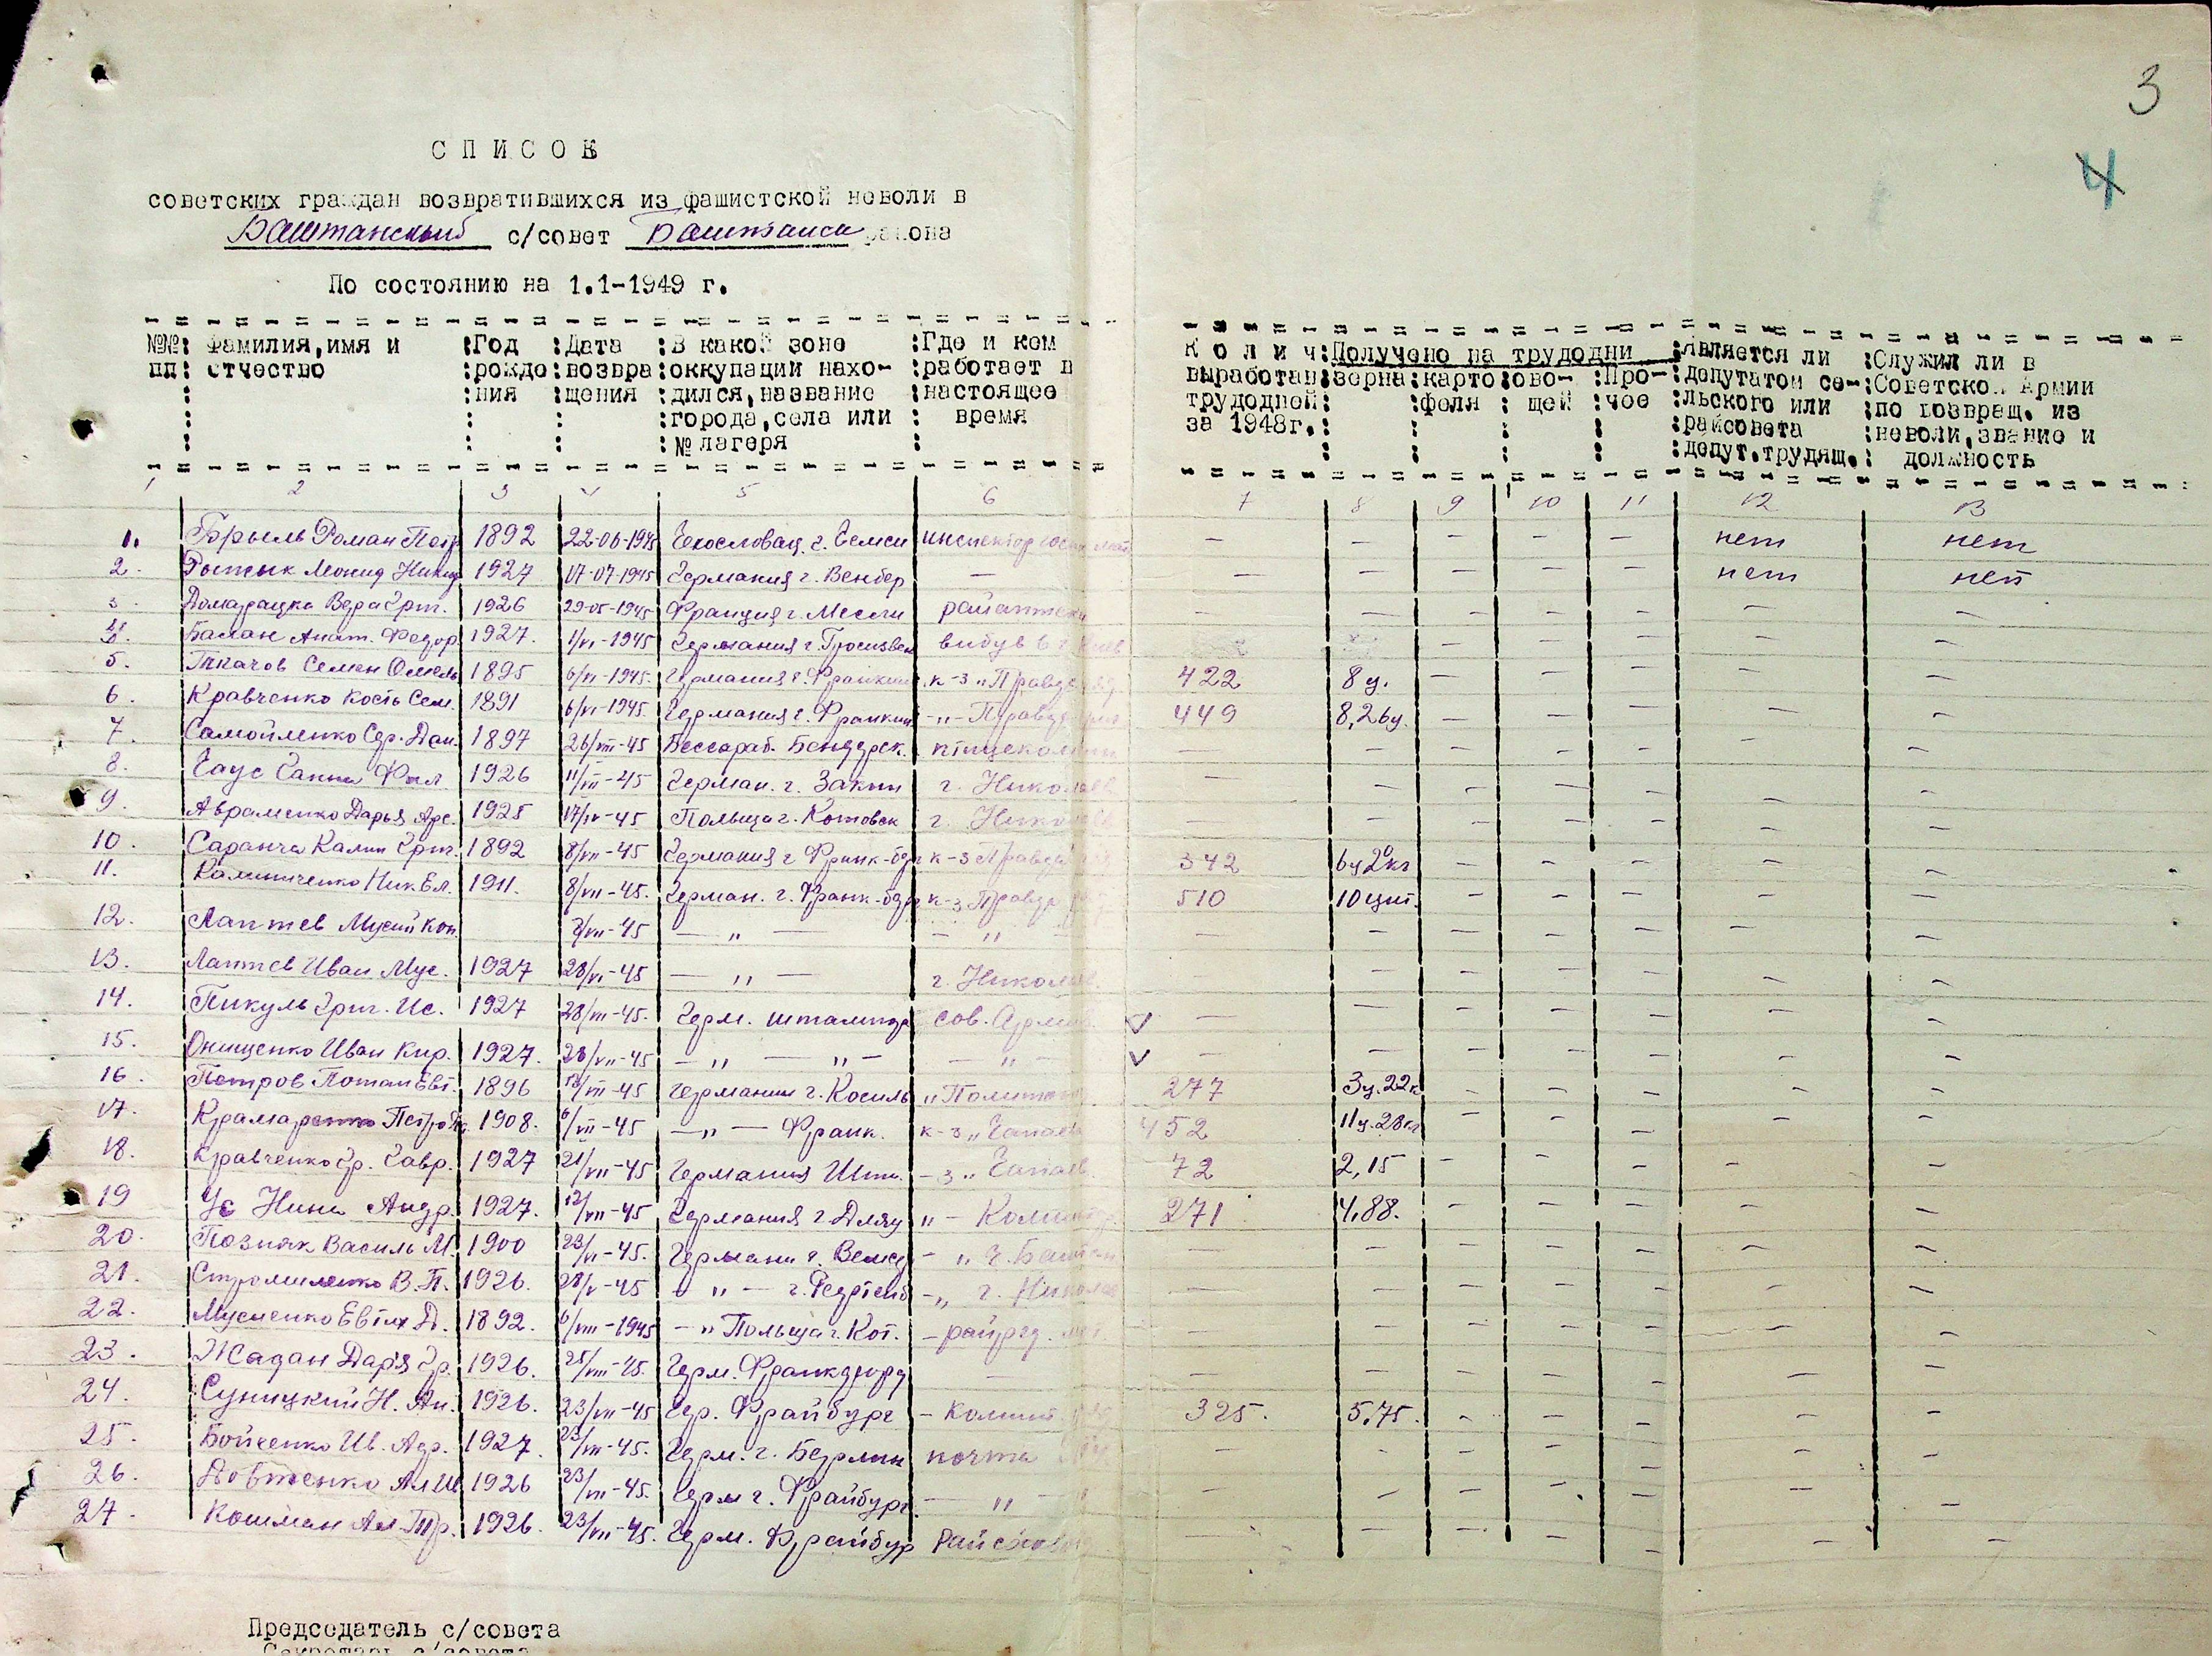 3
4
СПИСОК
советских граждан возвратившихся из фашистской неволи в
Баштанский с/совет Баштанск района
По состоянию на 1.1-1949 г.
№№ пп : Фамилия, имя и отчество : Год рождения : Дата возвращения : В какой зоне оккупации находился, название города, села или № лагеря : Где и кем работает в настоящее время : Колич выработан трудодней за 1948г. : Получено на трудодни : зерна : картофеля : овощей : Прочое : Является ли депутатом сельского или райсовета депут. трудящ. : Служил ли в Советской Армии по возвращ. из неволи, звание и должность
1 2 3 4 5 6 7 8 9 10 11 12 13
1. Брыль Роман Петр 1892 22-06-1945 Чехословац. г. инспектор — — — — — нет нет
2. Леонид Никид 1927 17-07-1945 Германия г. Венбер — — — — — — нет нет
3. Домарацка Вера Григ. 1926 29-05-1945 Франция г. Месли райаптека — — — — — — —
4. Балан Анат. Федор. 1927. 1/VI-1945 Германия г. вибув в г. Киев — — — — —
5. Ткачов Семен Омель 1895 6/VI-1945. Германия г. к-з "Правда 422 8 ц. — — — — —
6. Кравченко Кость Сем. 1891 6/VI-1945. Германия г. -"- Правда 449 8,26ц. — — — — —
7. Самойленко Сер. Дан. 1897 26/VIII-45 Бессараб. Бендерск. — — — — — — —
8. Гаус Ганна Фил 1926 11/VII-45 Герман. г. Закт г. Николаев — — — — — — —
9. Авраменко Дарья Арс. 1925 17/IV-45 Польща г. Котовск г. Николаев — — — — — — —
10. Саранча Калин Григ. 1892 8/VII-45 Германия г Франк-бер к-з Правда 342 6ц20кг — — — — —
11. Калиниченко Ник. Ел. 1911. 8/VII-45. Герман. г. Франк-бер к-з Правда 510 10 цнт. — — — — —
12. Лаптев Мусий Кон. 7/VII-45 — " — — " — — — — — — —
13. Лаптев Иван Мус. 1927 28/VI-45 — " — г. Николаев. — — — — — —
14. Пикуль Григ. Ис. 1927 28/VII-45. Герм. сов. Армия. V — — — — — — —
15. Онищенко Иван Кир. 1927. 28/VII-45 — " — " — — " — V — — — — — — —
16. Петров Потап Евт. 1896 13/VII-45 Германия г. Косиль 277 3ц.22к — — — — —
17. Крамаренко Петро 1908. 6/VII-45 — " — Франк. к-з "Чапаев 452 11ц.28кг — — — — —
18. Кравченко Гр. Гавр. 1927 21/VII-45 Германия Шт. -з "Чапаев. 72 2,15 — — — — —
19 Ус Нина Андр. 1927. 12/VII-45 Германия г " - 271 4,88. — — — — —
20. Позняк Василь М. 1900 23/VI-45. Германи г. " г. Баштан — — — — — — —
21. Стромиленко В. П. 1926. 28/V-45 — " — г. - " г. Николаев — — — — — — —
22. Мусиенко Евтих Д. 1892. 6/VIII-1945 - " Польща г. Кот. — — — — — — —
23. Жадан Дар'я Гр. 1926. 25/VIII-45. Герм. Франкфурд — — — — — — — —
24. Суницкий Н. Ан. 1926. 23/VII-45 Гер. Фрайбург 325. 5,75. — — — — —
25. Бойченко Ив. Адр. 1927. 23/VII-45. Герм. г. Берлин почта — — — — — — —
26. Довженко Ал И 1926 23/VII-45. Герм г. Фрайбург. — " — — — — — — —
27. Кошман Ал. Тр. 1926. 23/VII-45. Герм. Фрайбур — — — — —
Председатель с/совета
Секретарь с/совета